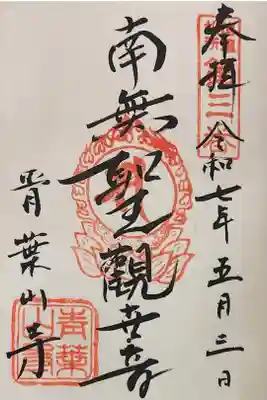 奉拝 令和七年五月三日
南無聖觀世音
青葉山寺
青葉山寺